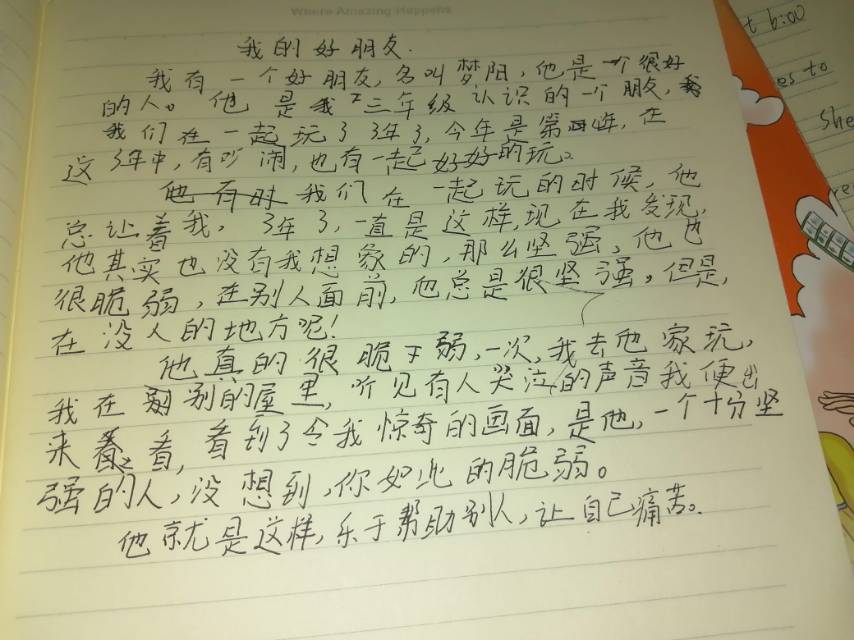 Where Amazing Happens
t 6:00
es to
She
我的好朋友.
我有一个好朋友,名叫梦阳,他是一个很好
的人。他是我三年级认识的一个朋友,
我们在一起玩了3年了,今年是第四年,在
这3年中,有吵闹,也有一起好好的玩。
他有时我们在一起玩的时候,他
总让着我,3年了,一直是这样,现在我发现,
他其实也没有我想象的,那么坚强,他也
很脆弱,在别人面前,他总是很坚强。但是,
在没人的地方呢!
他真的很脆弱,一次,我去他家玩,
我在别的屋里,听见有人哭泣的声音我便出
来看看,看到了令我惊奇的画面,是他,一个十分坚
强的人,没想到,你如此的脆弱。
他就是这样,乐于帮助别人,让自己痛苦。